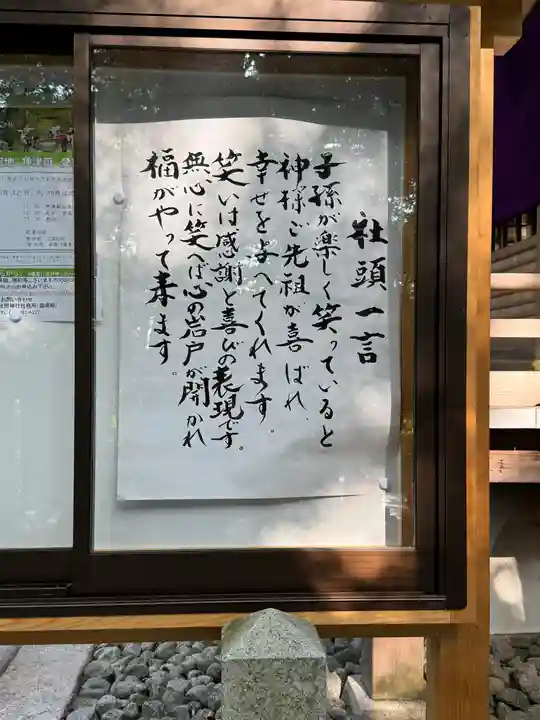 社頭一言
子孫が楽しく笑っていると
神様ご先祖が喜ばれ、
幸せをよへてくれます。
笑いは感謝と喜びの表現です。
無心に笑へば心の岩戸が開かれ
福がやって来ます。